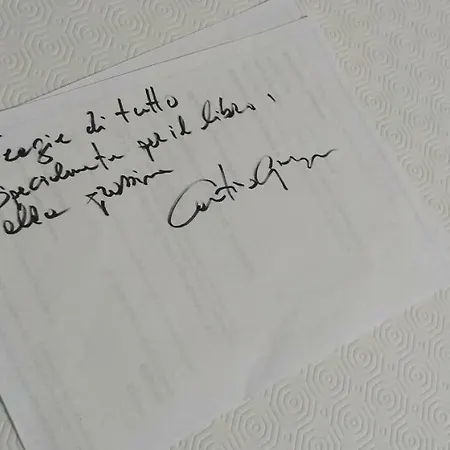 Grazie di tutto
Specialmente per il libro,
alla prossima